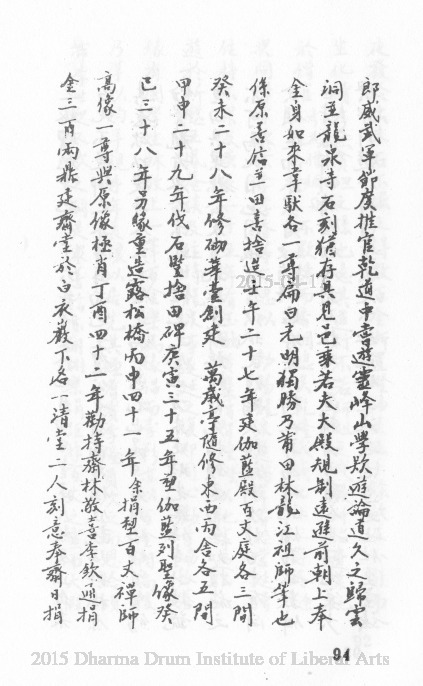 郎威武軍節度推官乾道中嘗遊靈峰山學欵遊論道久之歸雲
洞至龍泉寺石刻猶存具見邑乘若夫大殿規制遠遜前朝上奉
金身如來韋馱各一尊扁曰光明獨勝乃莆田林龍江祖師筆也
係原善信主田喜捨造壬午二十七年建伽藍殿百丈庭各三間
癸未二十八年修砌華臺創建萬歲亭隨修東西兩舍各五間
甲申二十九年伐石豎捨田碑庚寅三十五年塑伽藍列聖像癸
巳三十八年另緣重造露松橋丙申四十一年余捐塑百丈禪師
高像一尊與原像極肖丁酉四十二年勸持齋林敬喜李欽通捐
金三百兩鼎建齋堂於白衣巖下洛一清堂二人刻意奉齋日捐
94
2015 Dharma Drum Institute of Liberal Arts